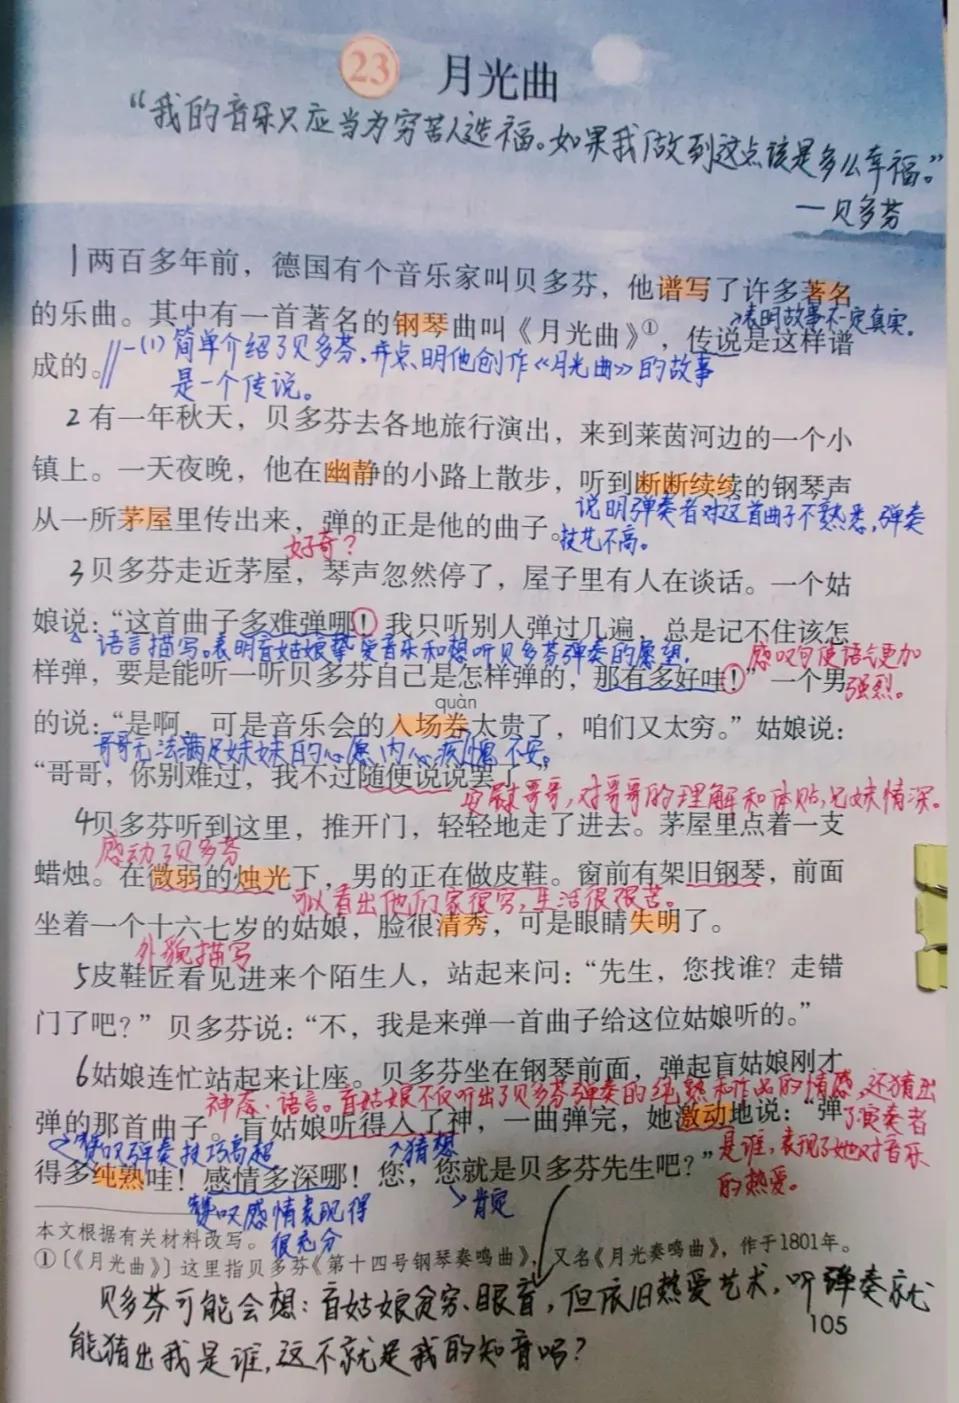 23 月光曲
“我的音乐只应当为穷苦人造福。如果我做到这点该是多么幸福。”
—贝多芬
1两百多年前，德国有个音乐家叫贝多芬，他谱写了许多著名
的乐曲。其中有一首著名的钢琴曲叫《月光曲》①，传说是这样谱
→表明故事不一定真实。
成的。//—(1)简单介绍了贝多芬，并点明他创作《月光曲》的故事
是一个传说。
2有一年秋天，贝多芬去各地旅行演出，来到莱茵河边的一个小
镇上。一天夜晚，他在幽静的小路上散步，听到断断续续的钢琴声
从一所茅屋里传出来，弹的正是他的曲子。
说明弹奏者对这首曲子不熟悉，弹奏
技艺不高。
好奇？
3贝多芬走近茅屋，琴声忽然停了，屋子里有人在谈话。一个姑
娘说：“这首曲子多难弹哪！我只听别人弹过几遍，总是记不住该怎
语言描写。表明盲姑娘挚爱音乐和想听贝多芬弹奏的愿望。
感叹句使语气更加
强烈。
样弹，要是能听一听贝多芬自己是怎样弹的，那有多好哇！”一个男
quàn
的说：“是啊，可是音乐会的入场券太贵了，咱们又太穷。”姑娘说：
哥哥无法满足妹妹的心愿，内心疚愧不安。
“哥哥，你别难过，我不过随便说说罢了。”
安慰哥哥，对哥哥的理解和体贴，兄妹情深。
4贝多芬听到这里，推开门，轻轻地走了进去。茅屋里点着一支
感动了贝多芬
蜡烛。在微弱的烛光下，男的正在做皮鞋。窗前有架旧钢琴，前面
可以看出他们家很穷，生活很艰苦。
坐着一个十六七岁的姑娘，脸很清秀，可是眼睛失明了。
外貌描写
5皮鞋匠看见进来个陌生人，站起来问：“先生，您找谁？走错
门了吧？”贝多芬说：“不，我是来弹一首曲子给这位姑娘听的。”
6姑娘连忙站起来让座。贝多芬坐在钢琴前面，弹起盲姑娘刚才
神态、语言。盲姑娘不仅听出了贝多芬弹奏的纯熟和作品的情感，还猜出
了演奏者
是谁，表现了她对音乐
的热爱。
弹的那首曲子。盲姑娘听得入了神，一曲弹完，她激动地说：“弹
赞叹弹奏技巧高超
→猜想
得多纯熟哇！感情多深哪！您，您就是贝多芬先生吧？”
赞叹感情表现得
很充分
→肯定
本文根据有关材料改写。
①〔《月光曲》〕这里指贝多芬《第十四号钢琴奏鸣曲》，又名《月光奏鸣曲》，作于1801年。
贝多芬可能会想：盲姑娘贫穷、眼盲，但依旧热爱艺术，听弹奏就
能猜出我是谁，这不就是我的知音吗？
105